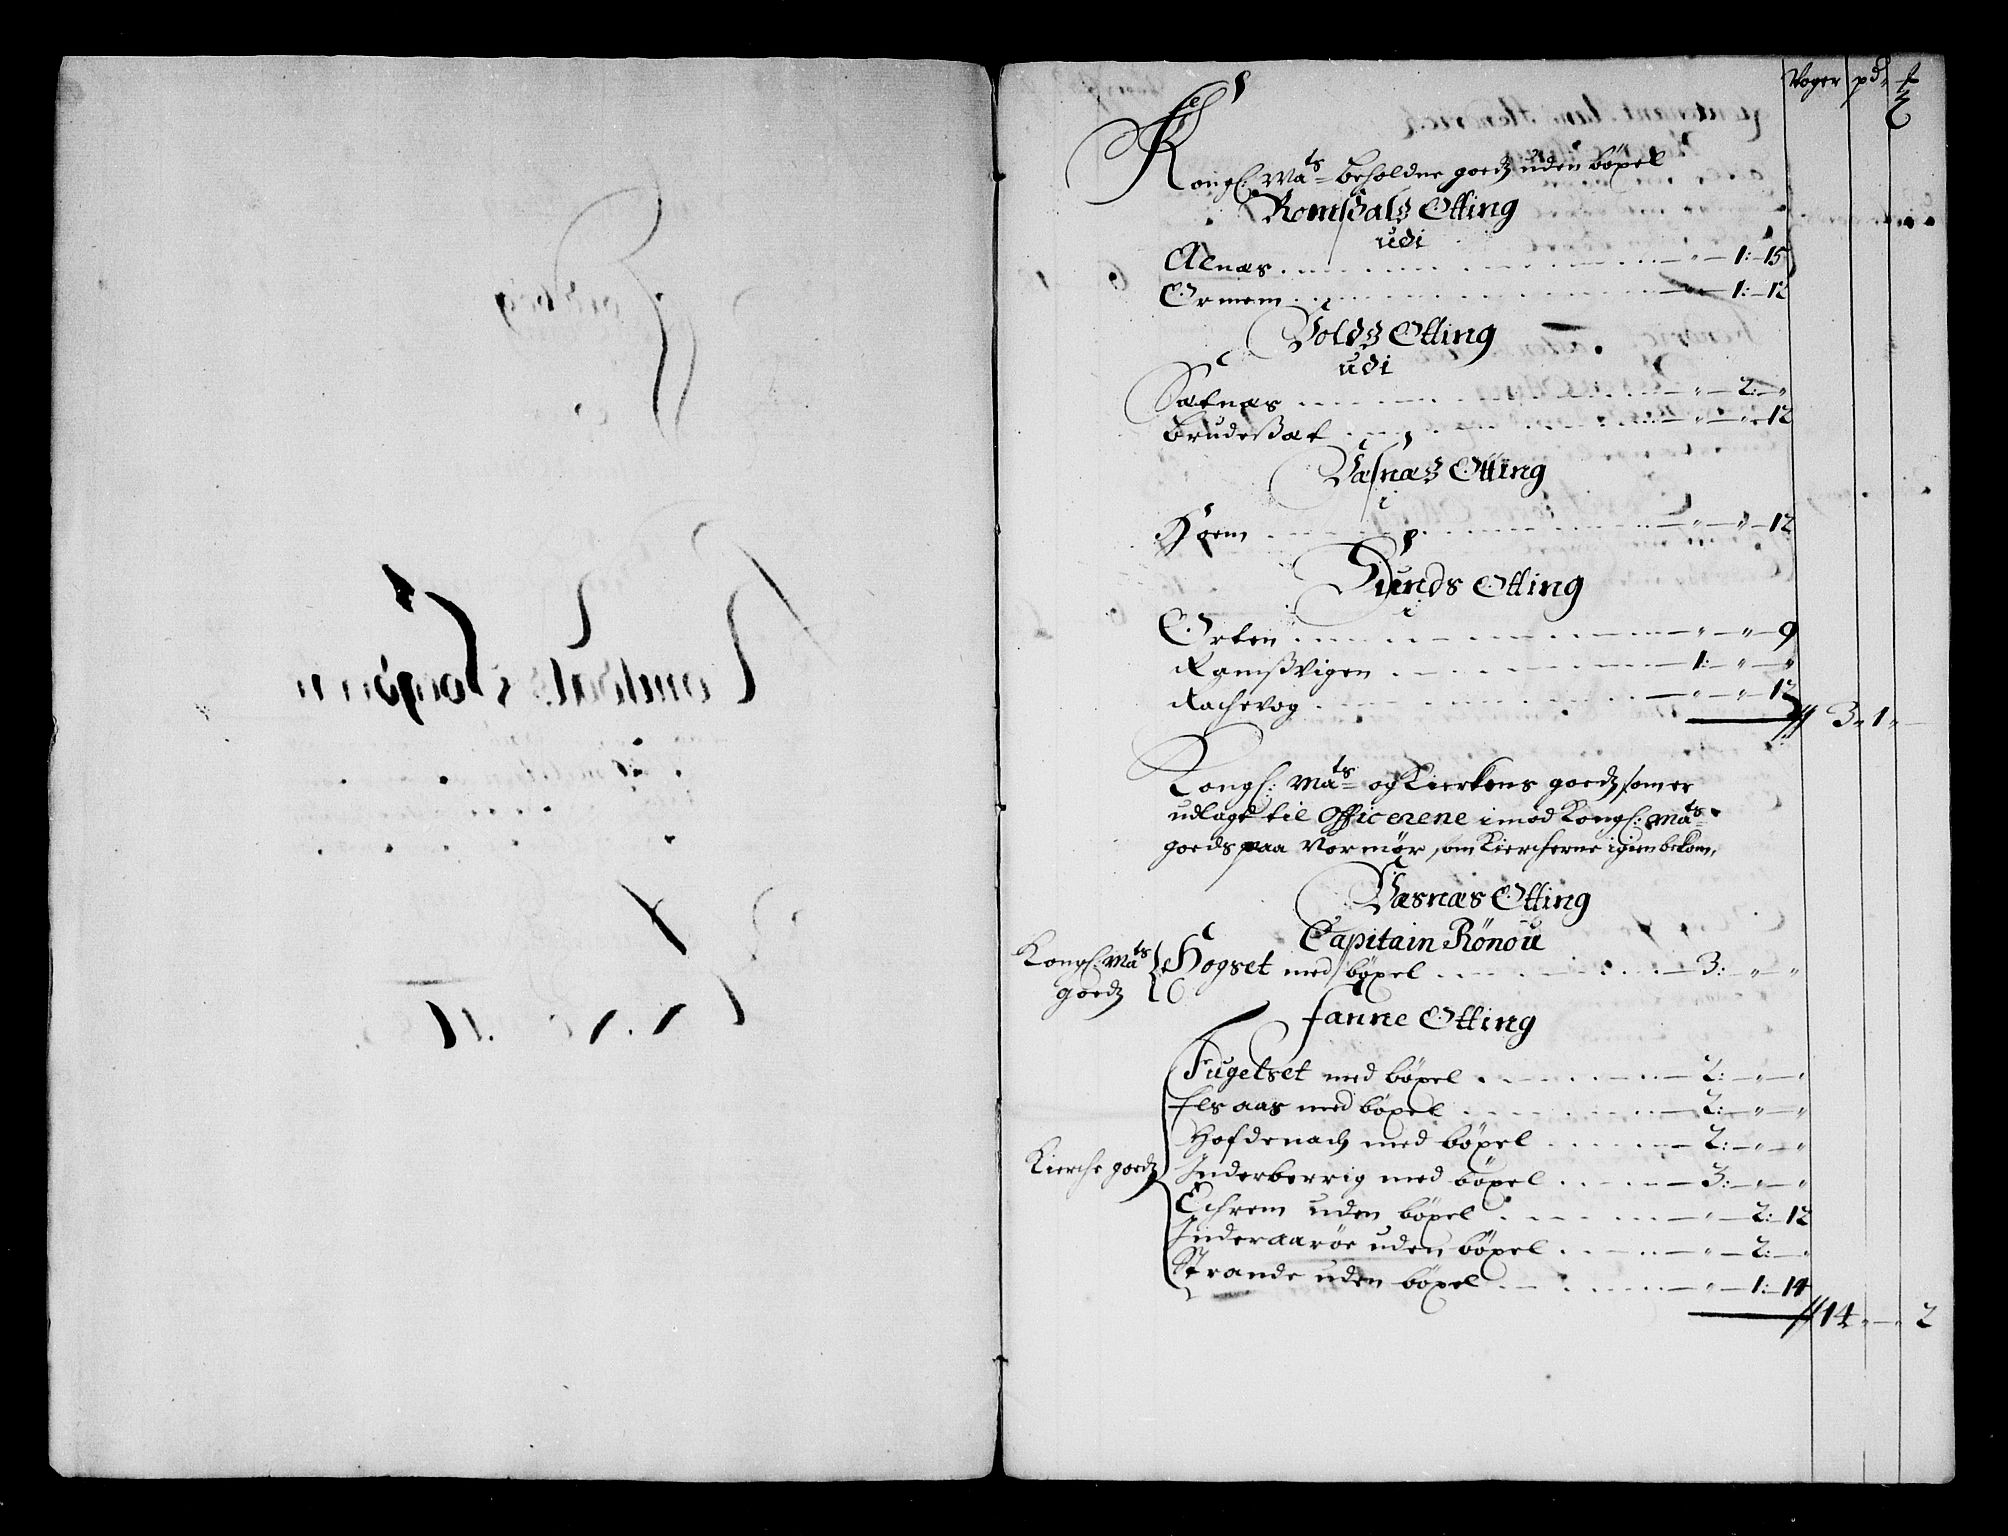 Voger pd ℔
Kongl: Mats beholdne goedz uden bøxel
Romsdals Otting
udi
Alnæs . . . . . . . . . . . . . . . . . „ — 1: — 15
Ormem . . . . . . . . . . . . . . . . . „ — 1: — 12
Volds Otting
udi
Sætnæs . . . . . . . . . . . . . . . . . „ — 2: — „
Brudeßæt . . . . . . . . . . . . . . . . . „ — „ — 12
Væsnæs Otting
i
Høem . . . . . . . . . . . . . . . . . „ — „ — 12
Sunds Otting
i
Orten . . . . . . . . . . . . . . . . . „ — „ — 9
Ramßvigen . . . . . . . . . . . . . . . 1: „ — „
Rachevog . . . . . . . . . . . . . . . . . „ — „ — 12
// 3 „ 1 „ —
Kongl: Mats og Kierkens goedz som er
udlagt til Officerene imod Kongl: Mats
goeds paa Normør, som Kiercherne igien bekom,
Væsnæs Otting
Capitain Rönou
Kongl: Mats goedz
Hogset med bøxel . . . . . . . . . — 3: „ — „
fanne Otting
Kierche goedz
Fugelset med bøxel . . . . . . . . — 2: — „ — „
Elsaas med bøxel . . . . . . . . — 2: — „ — „
Hofdenach med bøxel . . . . . . . — 2: — „ — „
Inderberrig med bøxel . . . . . — 3: — „ — „
Echrem uden bøxel . . . . . . . . — „ — 2: — 12
Inderaarøe uden bøxel . . . . . . — „ — 2: — „
Strande uden bøxel . . . . . . . . — „ — 1: — 14
// 14 „ — „ 2